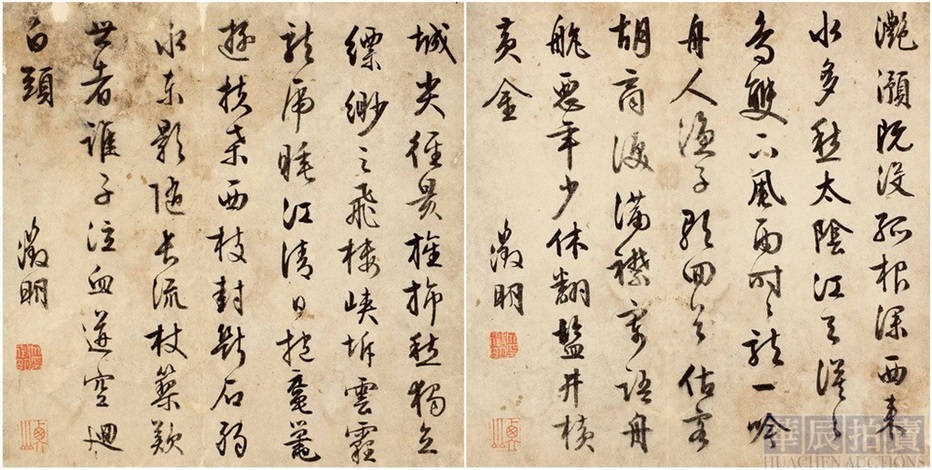 灧澦既没孤根深西来
水多愁太陰江天漠〻
鳥雙下風雨時〻龍一吟
舟人漁子歌回首估客
胡商淚滿襟寄語舟
航惡年少休翻鹽井横
黄金
徵明
城尖徑昃旌旆愁獨立
縹緲之飛樓峽坼雲霾
龍虎睡江清日抱黿鼉
遊扶桑西枝封斷石弱
水東影隨長流杖藜歎
世者誰子泣血迸空廻
白頭
徵明
華辰拍賣
HUACHEN AUCTIONS